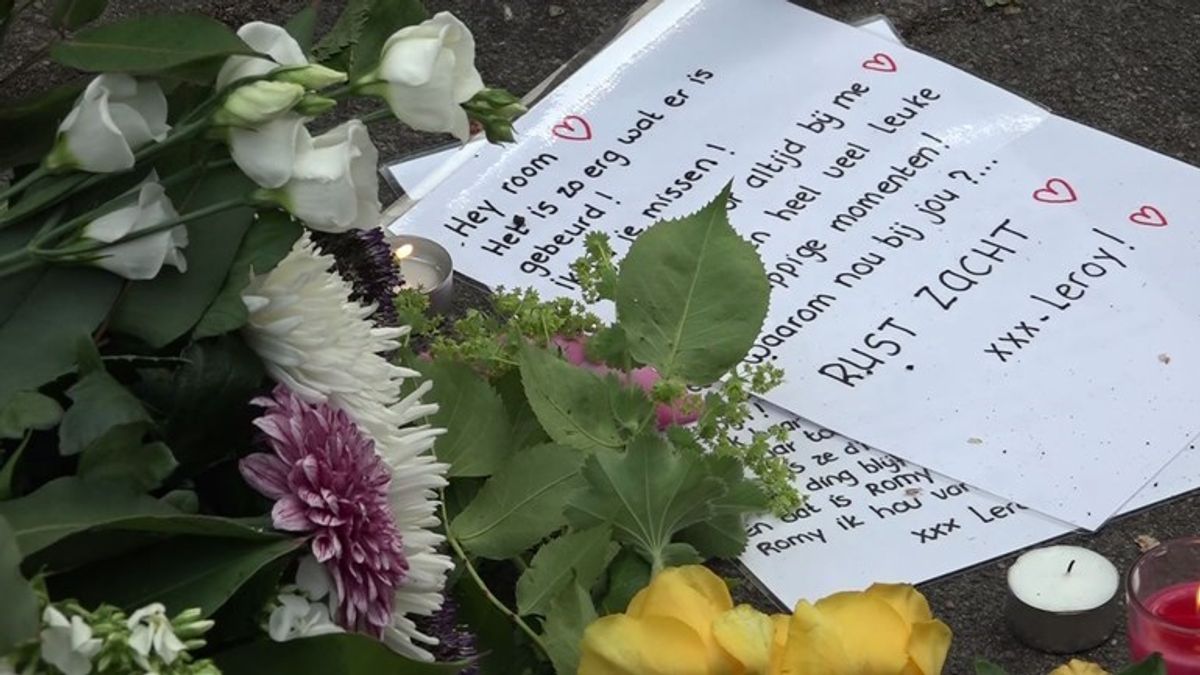 Hey room
Het is zo erg wat er is
gebeurd!
je missen!
altijd bij me
heel veel leuke
ppige momenten!
waarom nou bij jou?...
RUST ZACHT
xxx-Leroy!
ze d
ding blijk
en dat is Romy
Romy ik hou var
xxx Ler